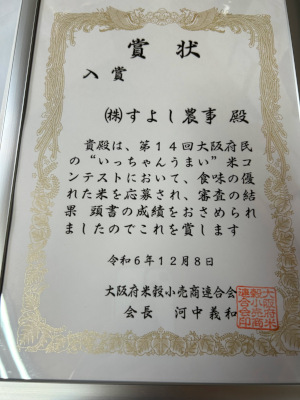 賞状
入賞
㈱すよし農事 殿
貴殿は、第14回大阪府民
の“いっちゃんうまい”米コ
ンテストにおいて、食味の優
れた米を応募され、審査の結
果 頭書の成績をおさめられ
ましたのでこれを賞します
令和6年12月8日
大阪府米穀小売商連合会
会長 河中義和
大阪府米
穀小売商
連合会印